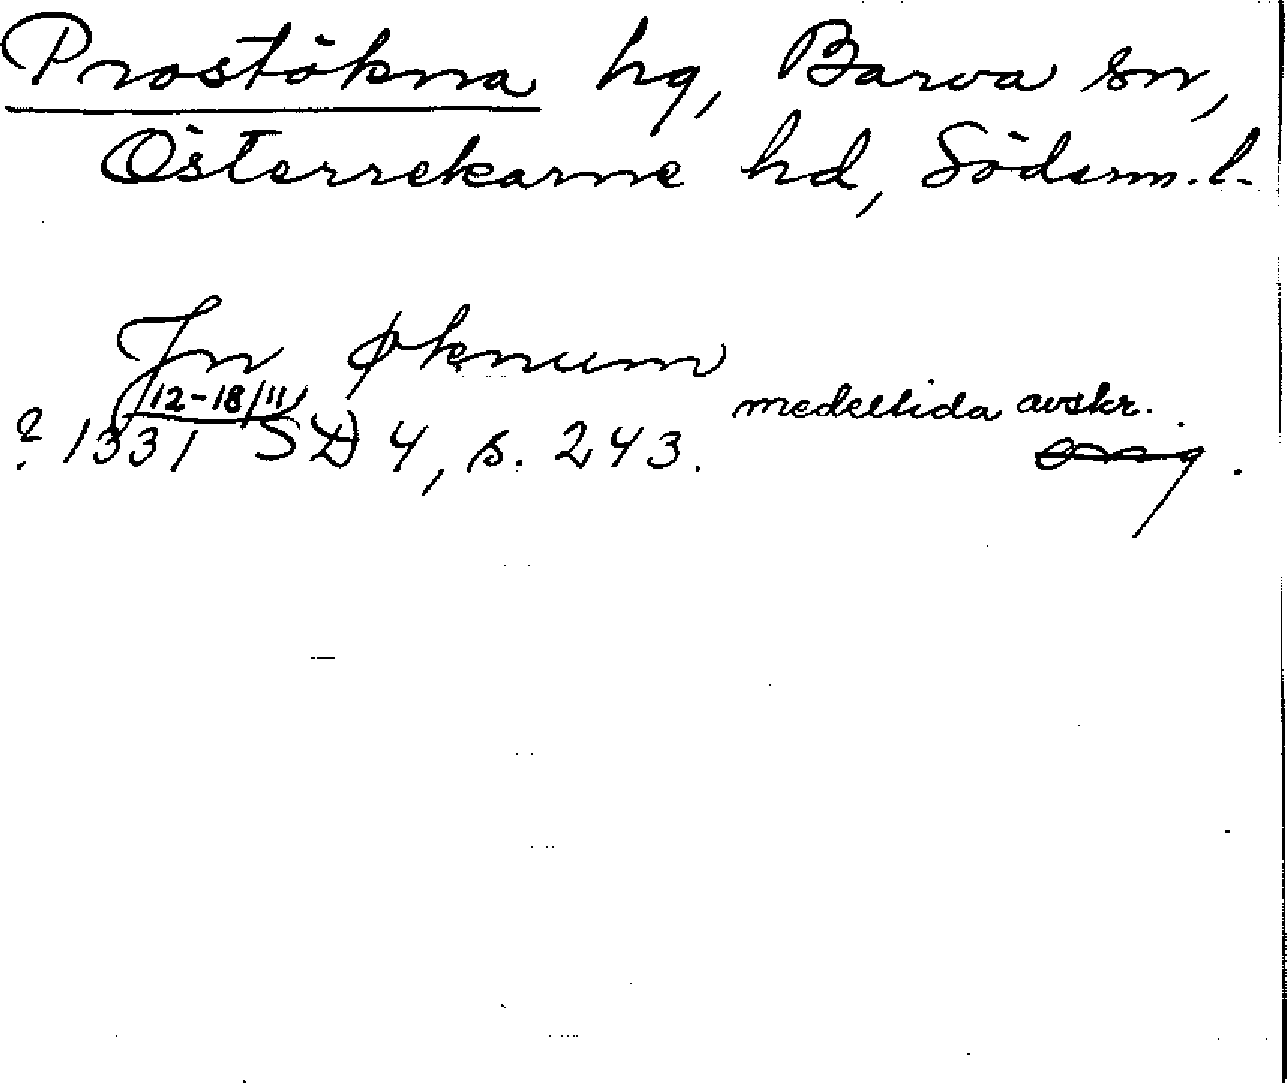 Prostökna hg, Barva sn,
Österrekarne hd, Söderm. l.
Jn øknum
(12-18/11)
? 1331 SD 4, s. 243. medeltida avskr.
orig.